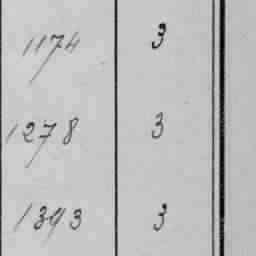 1174 3
1278 3
1393 3